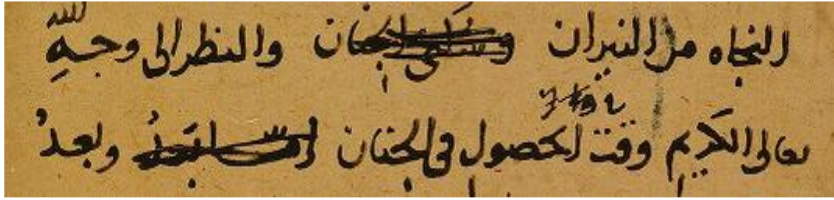 النجاه من النيران وسكنى الجنان والنظر الى وجه الله
تعالى الكريم وقت الحصول فى الجنان وبعد